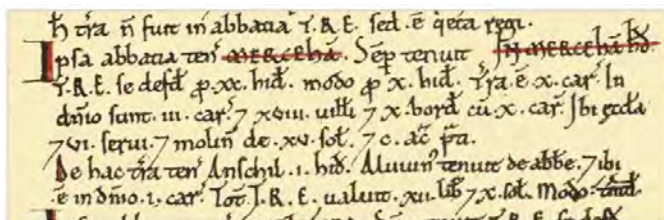 h̄ tr̄a n̄ fuit in abbatia .T.R.E. sed .ē q̇eta regi.
Ipsa abbatia ten' MERCEHĀ. Sēp tenuit IN MERCEHĀ HD̄.
T.R.E. se defd̄ ꝑ .xx. hid̄. modo ꝑ .x. hid̄. Tr̄a .ē .x. car'. In
dn̄io sunt .iii. car'. ⁊ xviii. uilli ⁊ x. bord̄ cū .x. car'. Ibi æccła
⁊ vi. serui. ⁊ molin' de .xv. soł. ⁊ c. ac̄ p̄ti.
De hac tr̄a ten' Anschil .i. hid̄. Aluuin' tenuit de abb̄e. ⁊ ibi
.ē in dn̄io .i. car'. Tot̄. T.R.E. ualuit .xii. lib̄ ⁊ x. soł. Modo